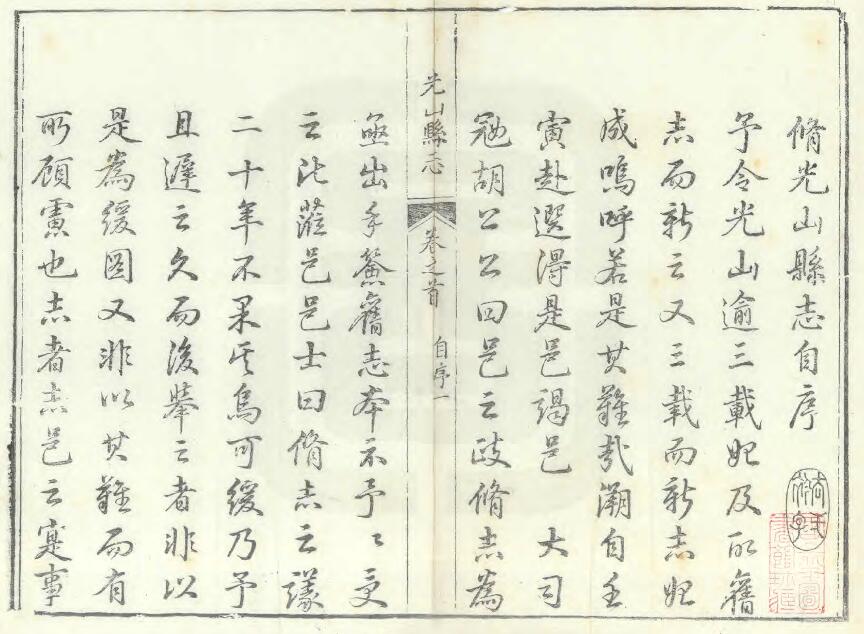 脩光山縣志自序
予令光山逾三載始及取舊
志而新之又三載而新志始
成嗚呼若是其難哉溯自壬
寅赴選得是邑謁邑 大司
寇胡公公曰邑之政脩志為
光山縣志 卷之首 自序一
亟出手簽舊志本示予〻受
之比蒞邑邑士曰脩志之議
二十年不果矣烏可緩乃予
且遲之久而後舉之者非以
是為緩圖又非以其難而有
所顧慮也志者志邑之寔事